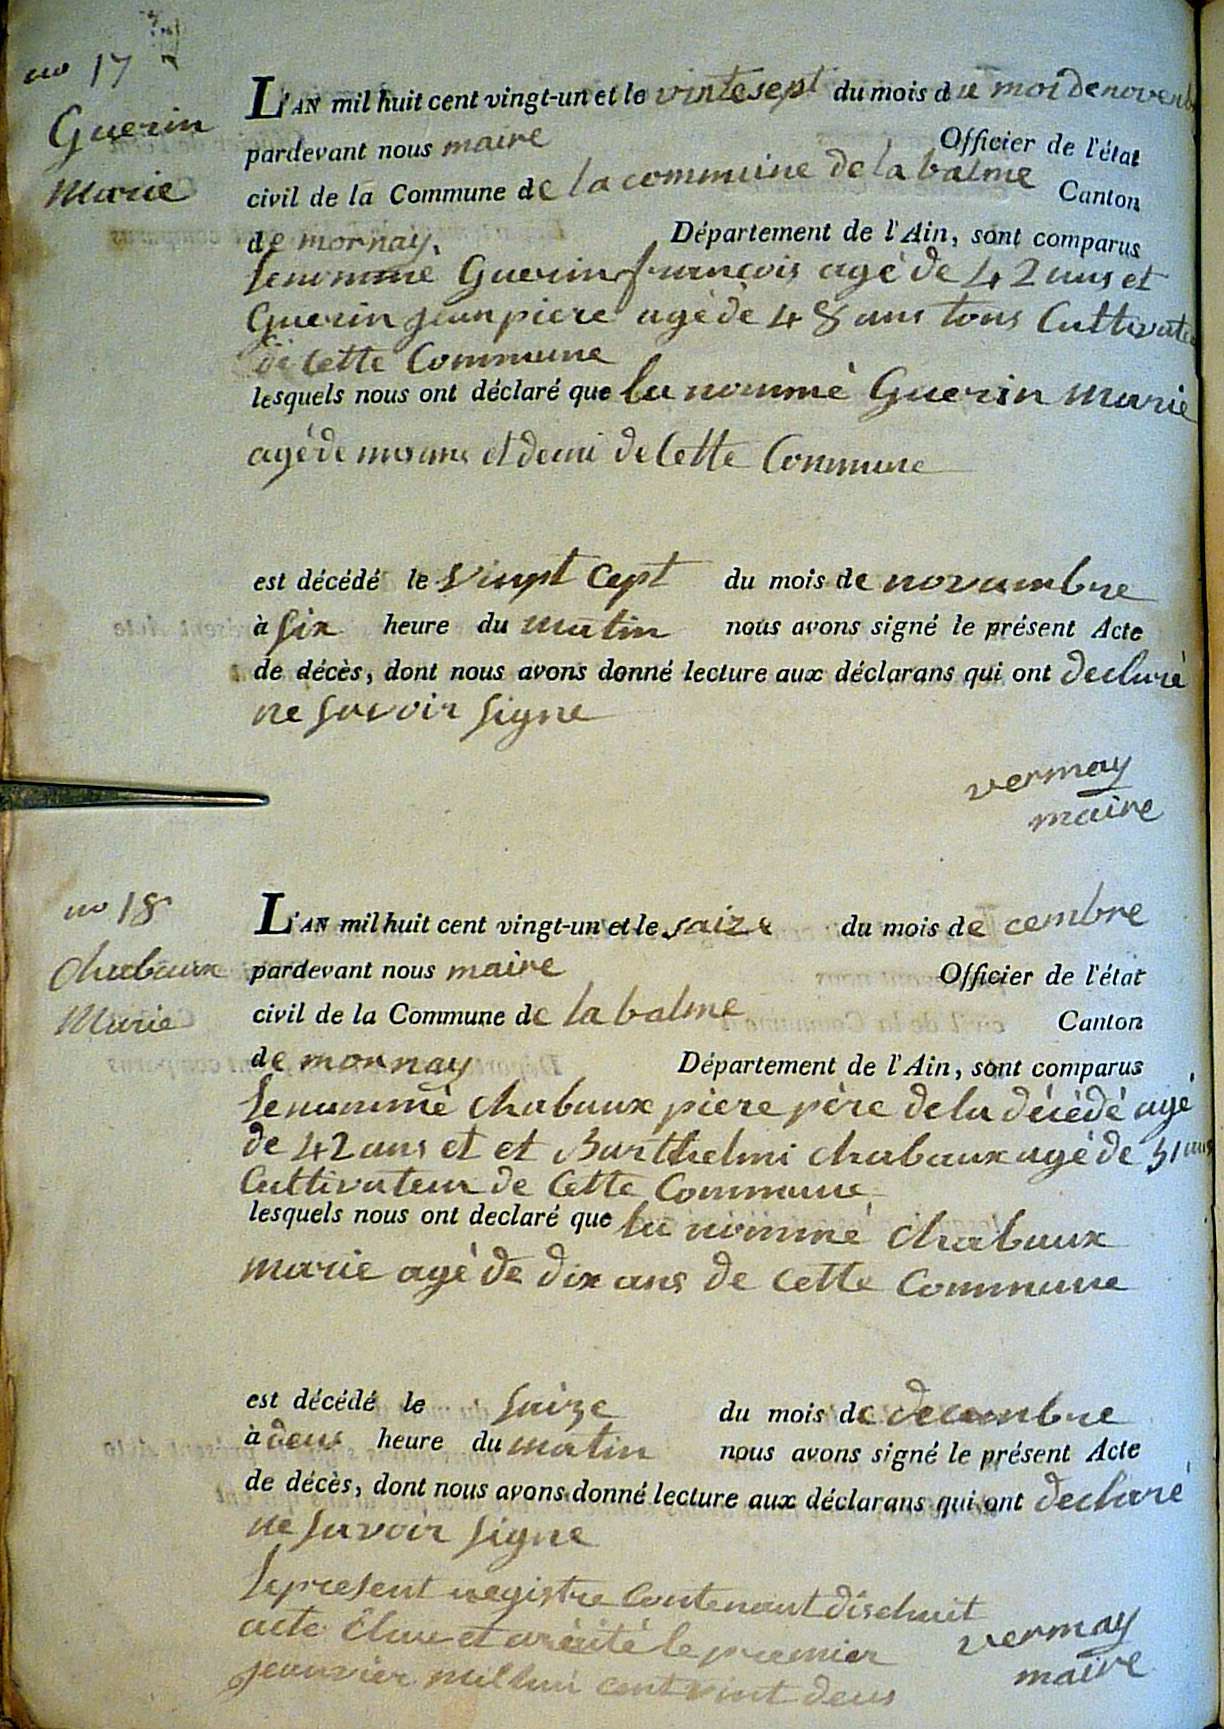 no 17
Guerin
Marie
L'AN mil huit cent vingt-un et le vintesept du mois du moi de novenb
pardevant nous maire Officier de l'état
civil de la Commune de la commune de la balme Canton
de mornay. Département de l'Ain, sont comparus
le nommé Guerin françois agé de 42 ans et
Guerin jean piere agé de 48 ans tous Cultivate
de Cette Commune
lesquels nous ont déclaré que la nommé Guerin Marie
agé de ans et demi de Cette Commune
est décédé le Vinpt Cept du mois de novambre
à six heure du matin nous avons signé le présent Acte
de décès, dont nous avons donné lecture aux déclarans qui ont declaré
ne savoir signe
vermay
maire
no 18
Chabaux
Marie
L'AN mil huit cent vingt-un et le saize du mois de cembre
pardevant nous maire Officier de l'état
civil de la Commune de la balme Canton
de mornay Département de l'Ain, sont comparus
le nommé chabaux piere père de la décédé agé
de 42 ans et et Barthelmi chabaux agé de 51 ans
Cultivateur de Cette Commune
lesquels nous ont declaré que la nommé chabaux
marie agé de dix ans de cette Commune
est décédé le saize du mois de decembre
à deus heure du matin nous avons signé le présent Acte
de décès, dont nous avons donné lecture aux déclarans qui ont declaré
ne savoir signe
le present registre Contenant dischuit
acte Clau et arèité le premier
jeanvier mil hui cent vint deus
vermay
maire